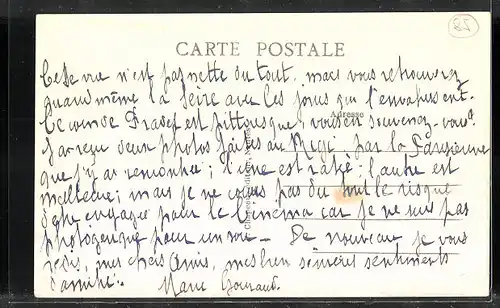 25
CARTE POSTALE
Adresse
Cette vue n'est pas nette du tout, mais vous retrouverez
quand même la Seine avec les joncs qui l'envahissent.
Ce coin de est pittoresque, vous en souvenez-vous?
J'ai reçu deux photos faites au par la Parisienne
que j'y ai rencontrée; l'une est ratée; l'autre est
meilleure; mais je ne cours pas du tout le risque
d'être engagée pour le Cinéma car je ne suis pas
photogénique pour un sou — De nouveau je vous
redis, mes chers Amis, mes bien sincères sentiments
d'amitié.